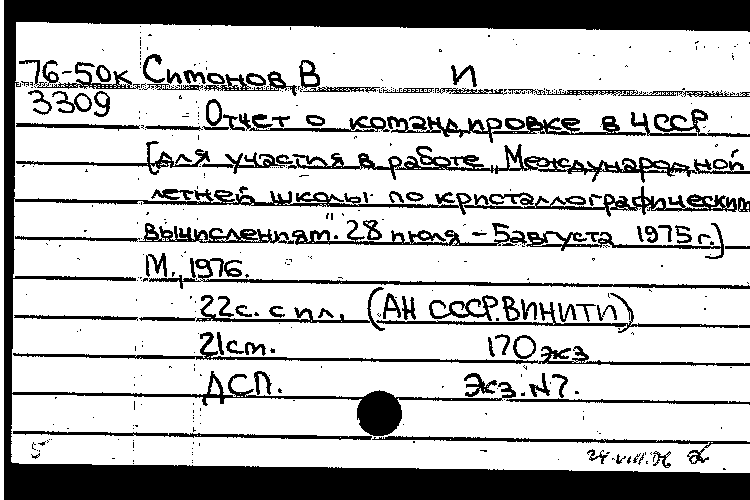 76-50к Симонов, В И
3309 Отчет о командировке в ЧССР
[для участия в работе „Международной
летней школы по кристаллографическим
вычислениям". 28 июля – 5 августа 1975 г.]
М., 1976.
22с. с ил. (АН СССР. ВИНИТИ)
21 см. 170 экз
ДСП. Экз. N7.
5 24.VIII.76